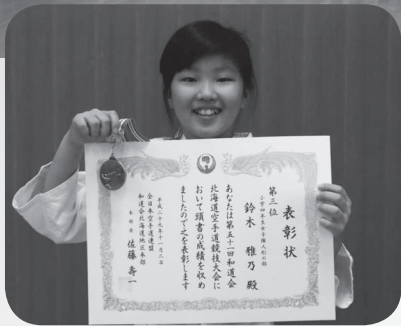 表彰状
第三位
小学四年生女子個人形の部
鈴木 雅乃 殿
あなたは第五十一回和道会
北海道空手道競技大会に
おいて頭書の成績を収め
ましたので之を表彰します
平成二十九年十一月三日
全日本空手道連盟
和道会北海道地区本部
本部長 佐藤 壽一